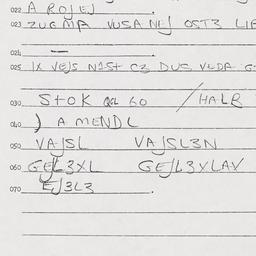 022 A ROJEJ
023 ZUGMA VUSANEJ OST3 LIF
024 —
025 IX VEJS N1St CZ DUS VEDA G
030 StOK 60 / HALB
040 J A MENDL
050 VAJSL VAJSL3N
060 GEJL3XL GEJL3XLAV
070 EJ3L3